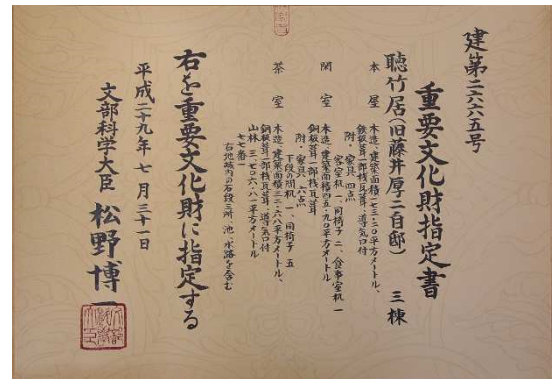 建第二六六五号
重要文化財指定書
聴竹居(旧藤井厚二自邸) 三棟
本屋 木造、建築面積一七三・二〇平方メートル、
鉄板葺一部桟瓦葺、導気口付
附・家具 四点
客室机 一、同椅子 二、食事室机 一
閑室 木造、建築面積四五・九〇平方メートル
銅板葺一部桟瓦葺
附・家具 六点
下段の間机 一、同椅子 五
茶室 木造、建築面積三二・六八平方メートル、
銅板葺一部桟瓦葺、導気口付
山林 三、七〇六・八一平方メートル
七七番一
右地域内の石段三所、池、水路を含む
右を重要文化財に指定する
平成二十九年七月三十一日
文部科学大臣 松野博一